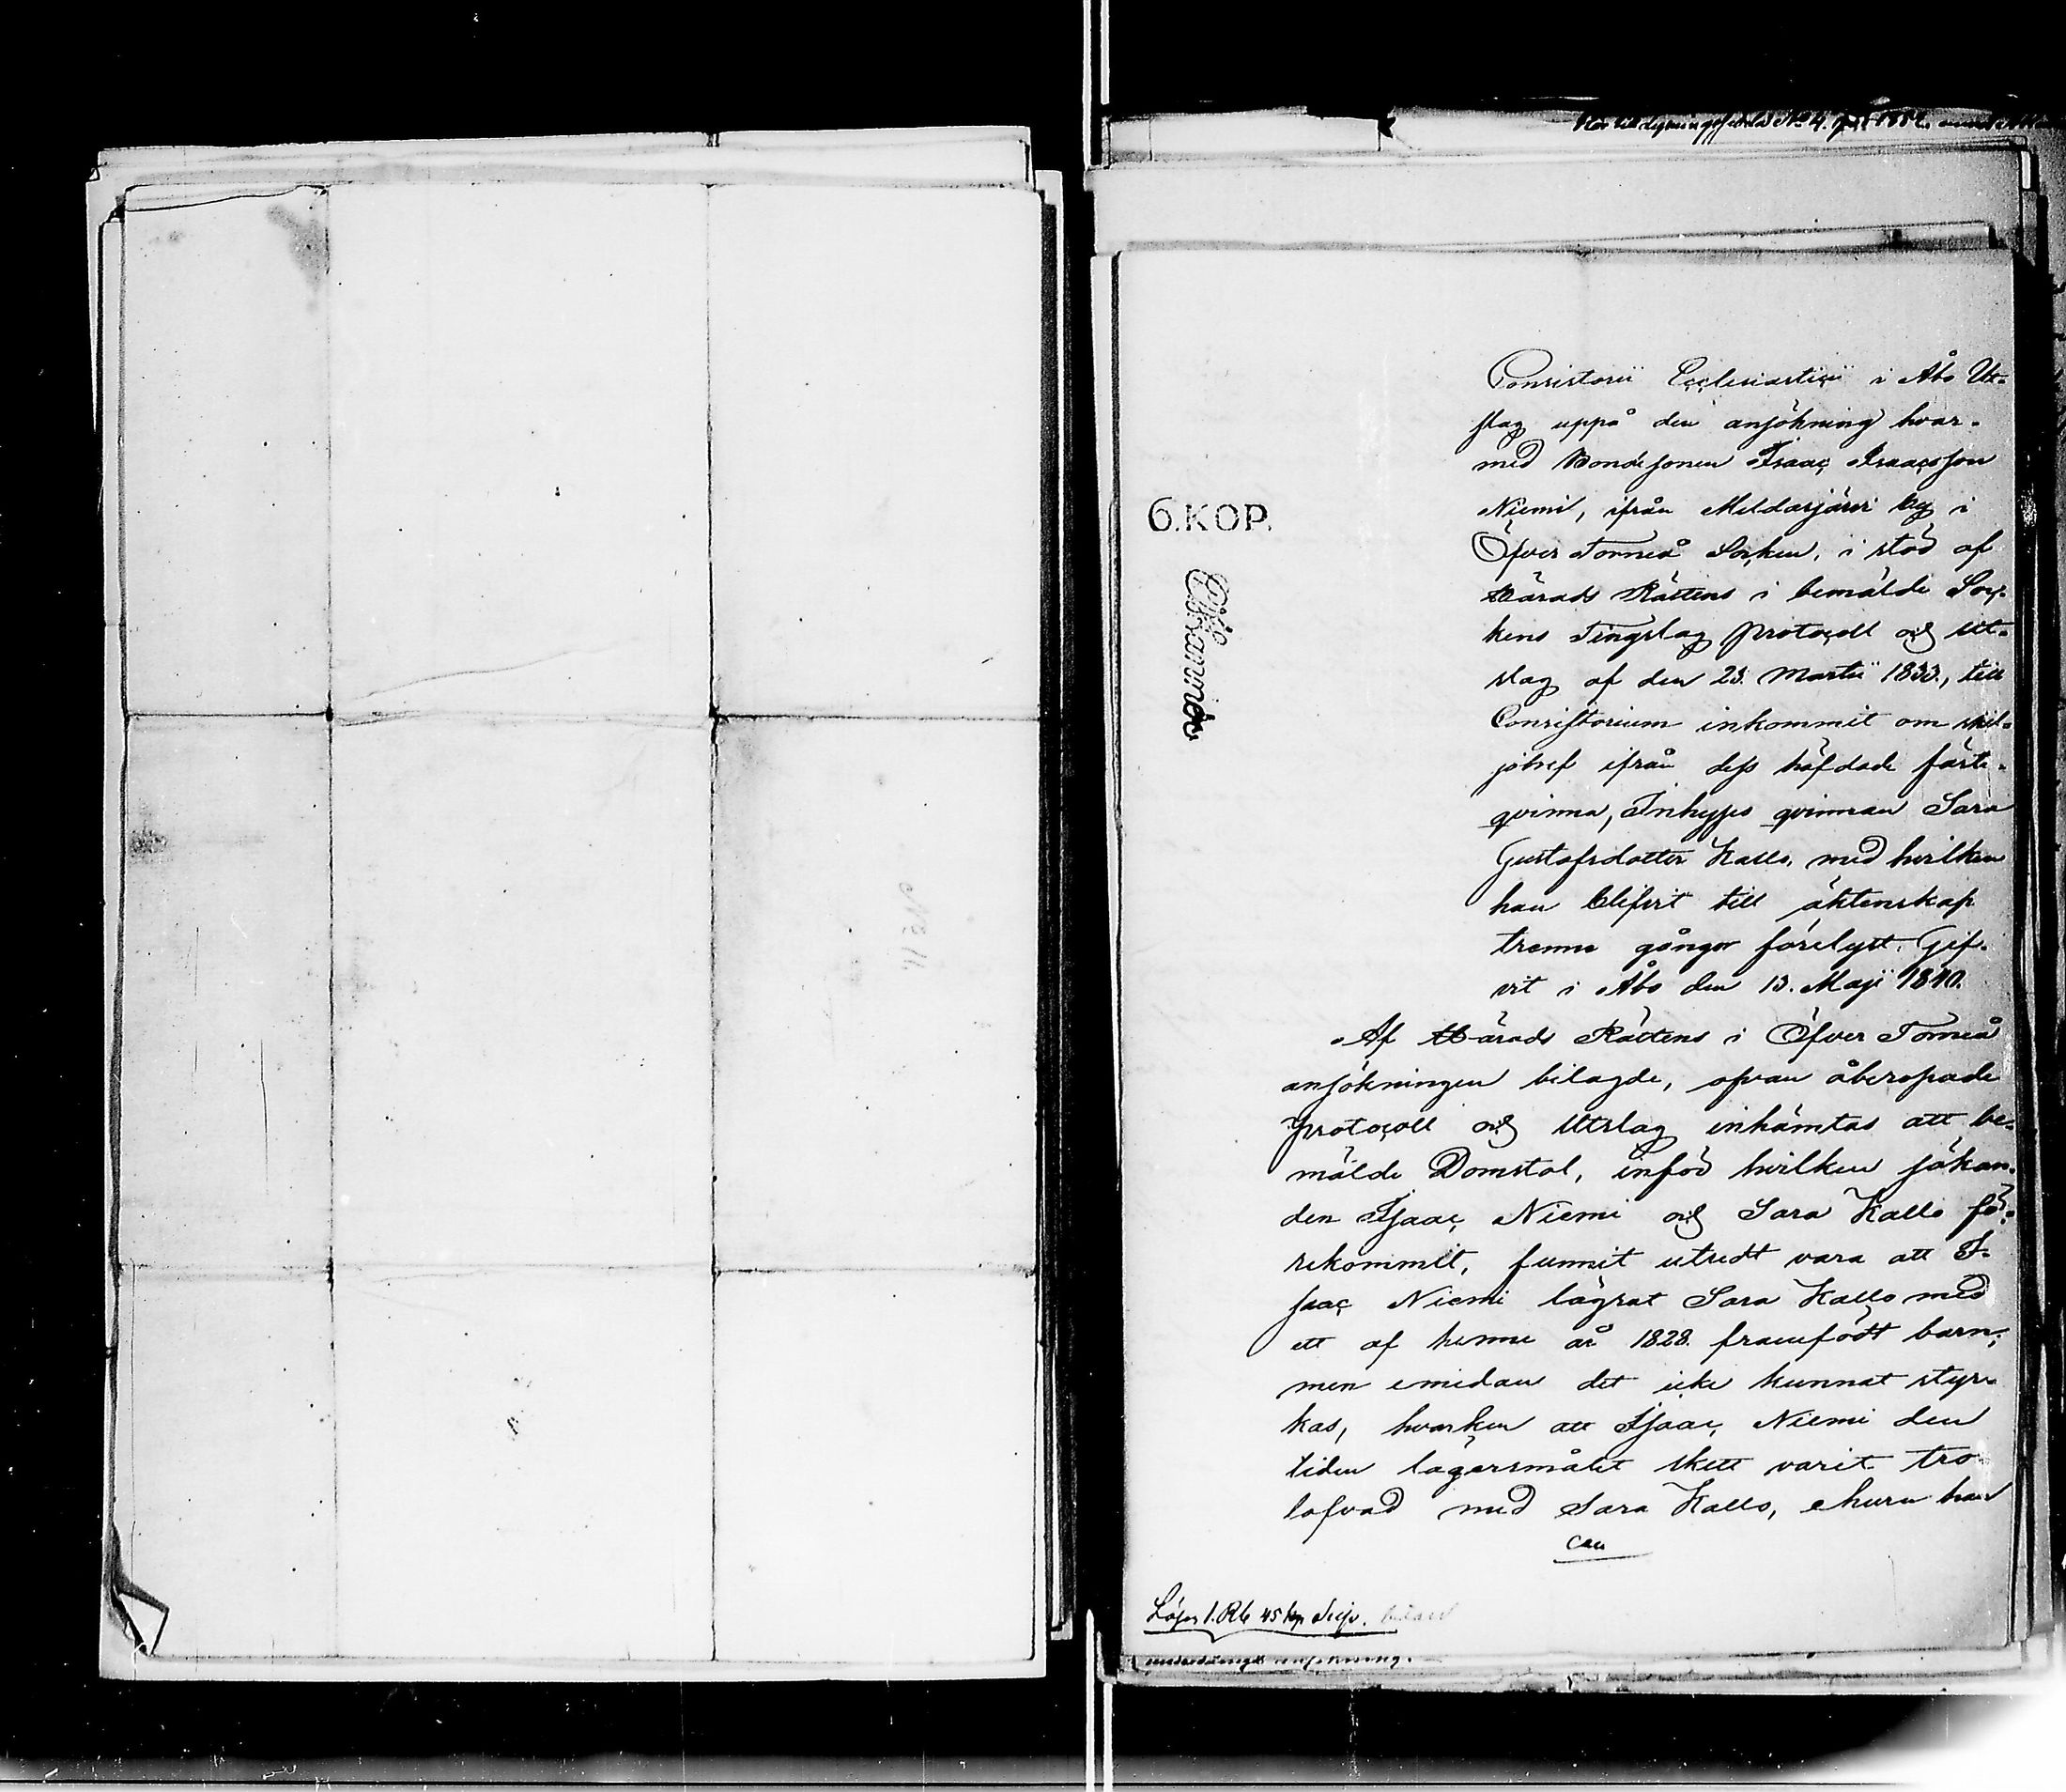 6.KOP.
Consistorii Ecclesiastici i Åbo Ut-
slag uppå den ansökning hvar-
med Bondesonen Isaac Isaacsson
Niemi, ifrån Meldosjärvi by i
Öfver Torneå Socken, i stöd af
Härads Rättens i bemälde Soc-
kens Tingslag Protocoll och Ut-
slag af den 23. Martii 1833., till
Consistorium inkommit om skil-
jobref ifrån dess häfdade fäste-
qvinna, Inhyses qvinnan Sara
Gustafsdotter Kallo, med hvilken
han blifvit till äktenskap
trenne gångor förelyst. Gif-
vit i Åbo den 13. Maji 1840.
Af Härads Rättens i Öfver Torneå
ansökningen bilagde, ofvan åberopade
Protocoll och Utslag inhämtas att be-
mälde Domstol, inför hvilken sökan-
den Isaac Niemi och Sara Kallo fö-
rekommit, funnit utredt vara att I-
saac Niemi lägrat Sara Kallo med
ett af henne år 1828. framfödt barn;
men emedan det icke kunnat styr-
kas, hvarken att Isaac Niemi den
tiden lägersmålet skett varit tro-
lofvad med Sara Kallo, ehuru han
Lösen 1. Rb 45 kop Silfv.
ansökning.